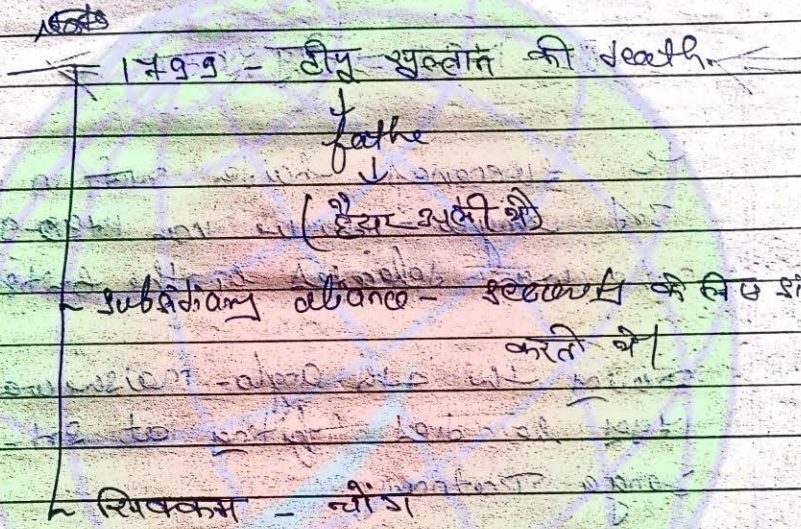 Note
- 1799 - टीपू सुल्तान की death.
↓
fathe
↓
(हैदर अली थे)
- subsidiary aliance - security के लिए
करती थे।
- सिक्कम - चोंग